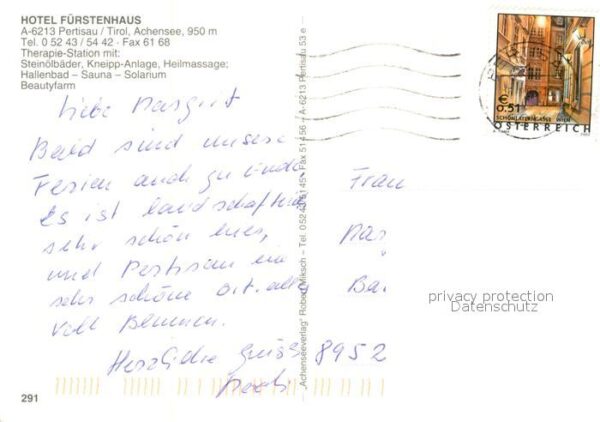 HOTEL FÜRSTENHAUS
A-6213 Pertisau / Tirol, Achensee, 950 m
Tel. 0 52 43 / 54 42 · Fax 61 68
Therapie-Station mit:
Steinölbäder, Kneipp-Anlage, Heilmassage;
Hallenbad – Sauna – Solarium
Beautyfarm
Liebe Margrit
Bald sind unsere
Ferien auch zu Ende
Es ist landschaftlich
sehr schön hier,
und Pertisau ein
sehr schöne Ort. alles
voll Blumen.
Herzliche Grüsse
291
„Achenseeverlag" Robert Miksch – Tel. 0 52 43 / 51 45 · Fax 51 45 6 – A-6213 Pertisau 53 e
€ 0,51
SCHÖNLATERNGASSE WIEN
ÖSTERREICH
Frau
Mar
Ba
8952
privacy protection
Datenschutz